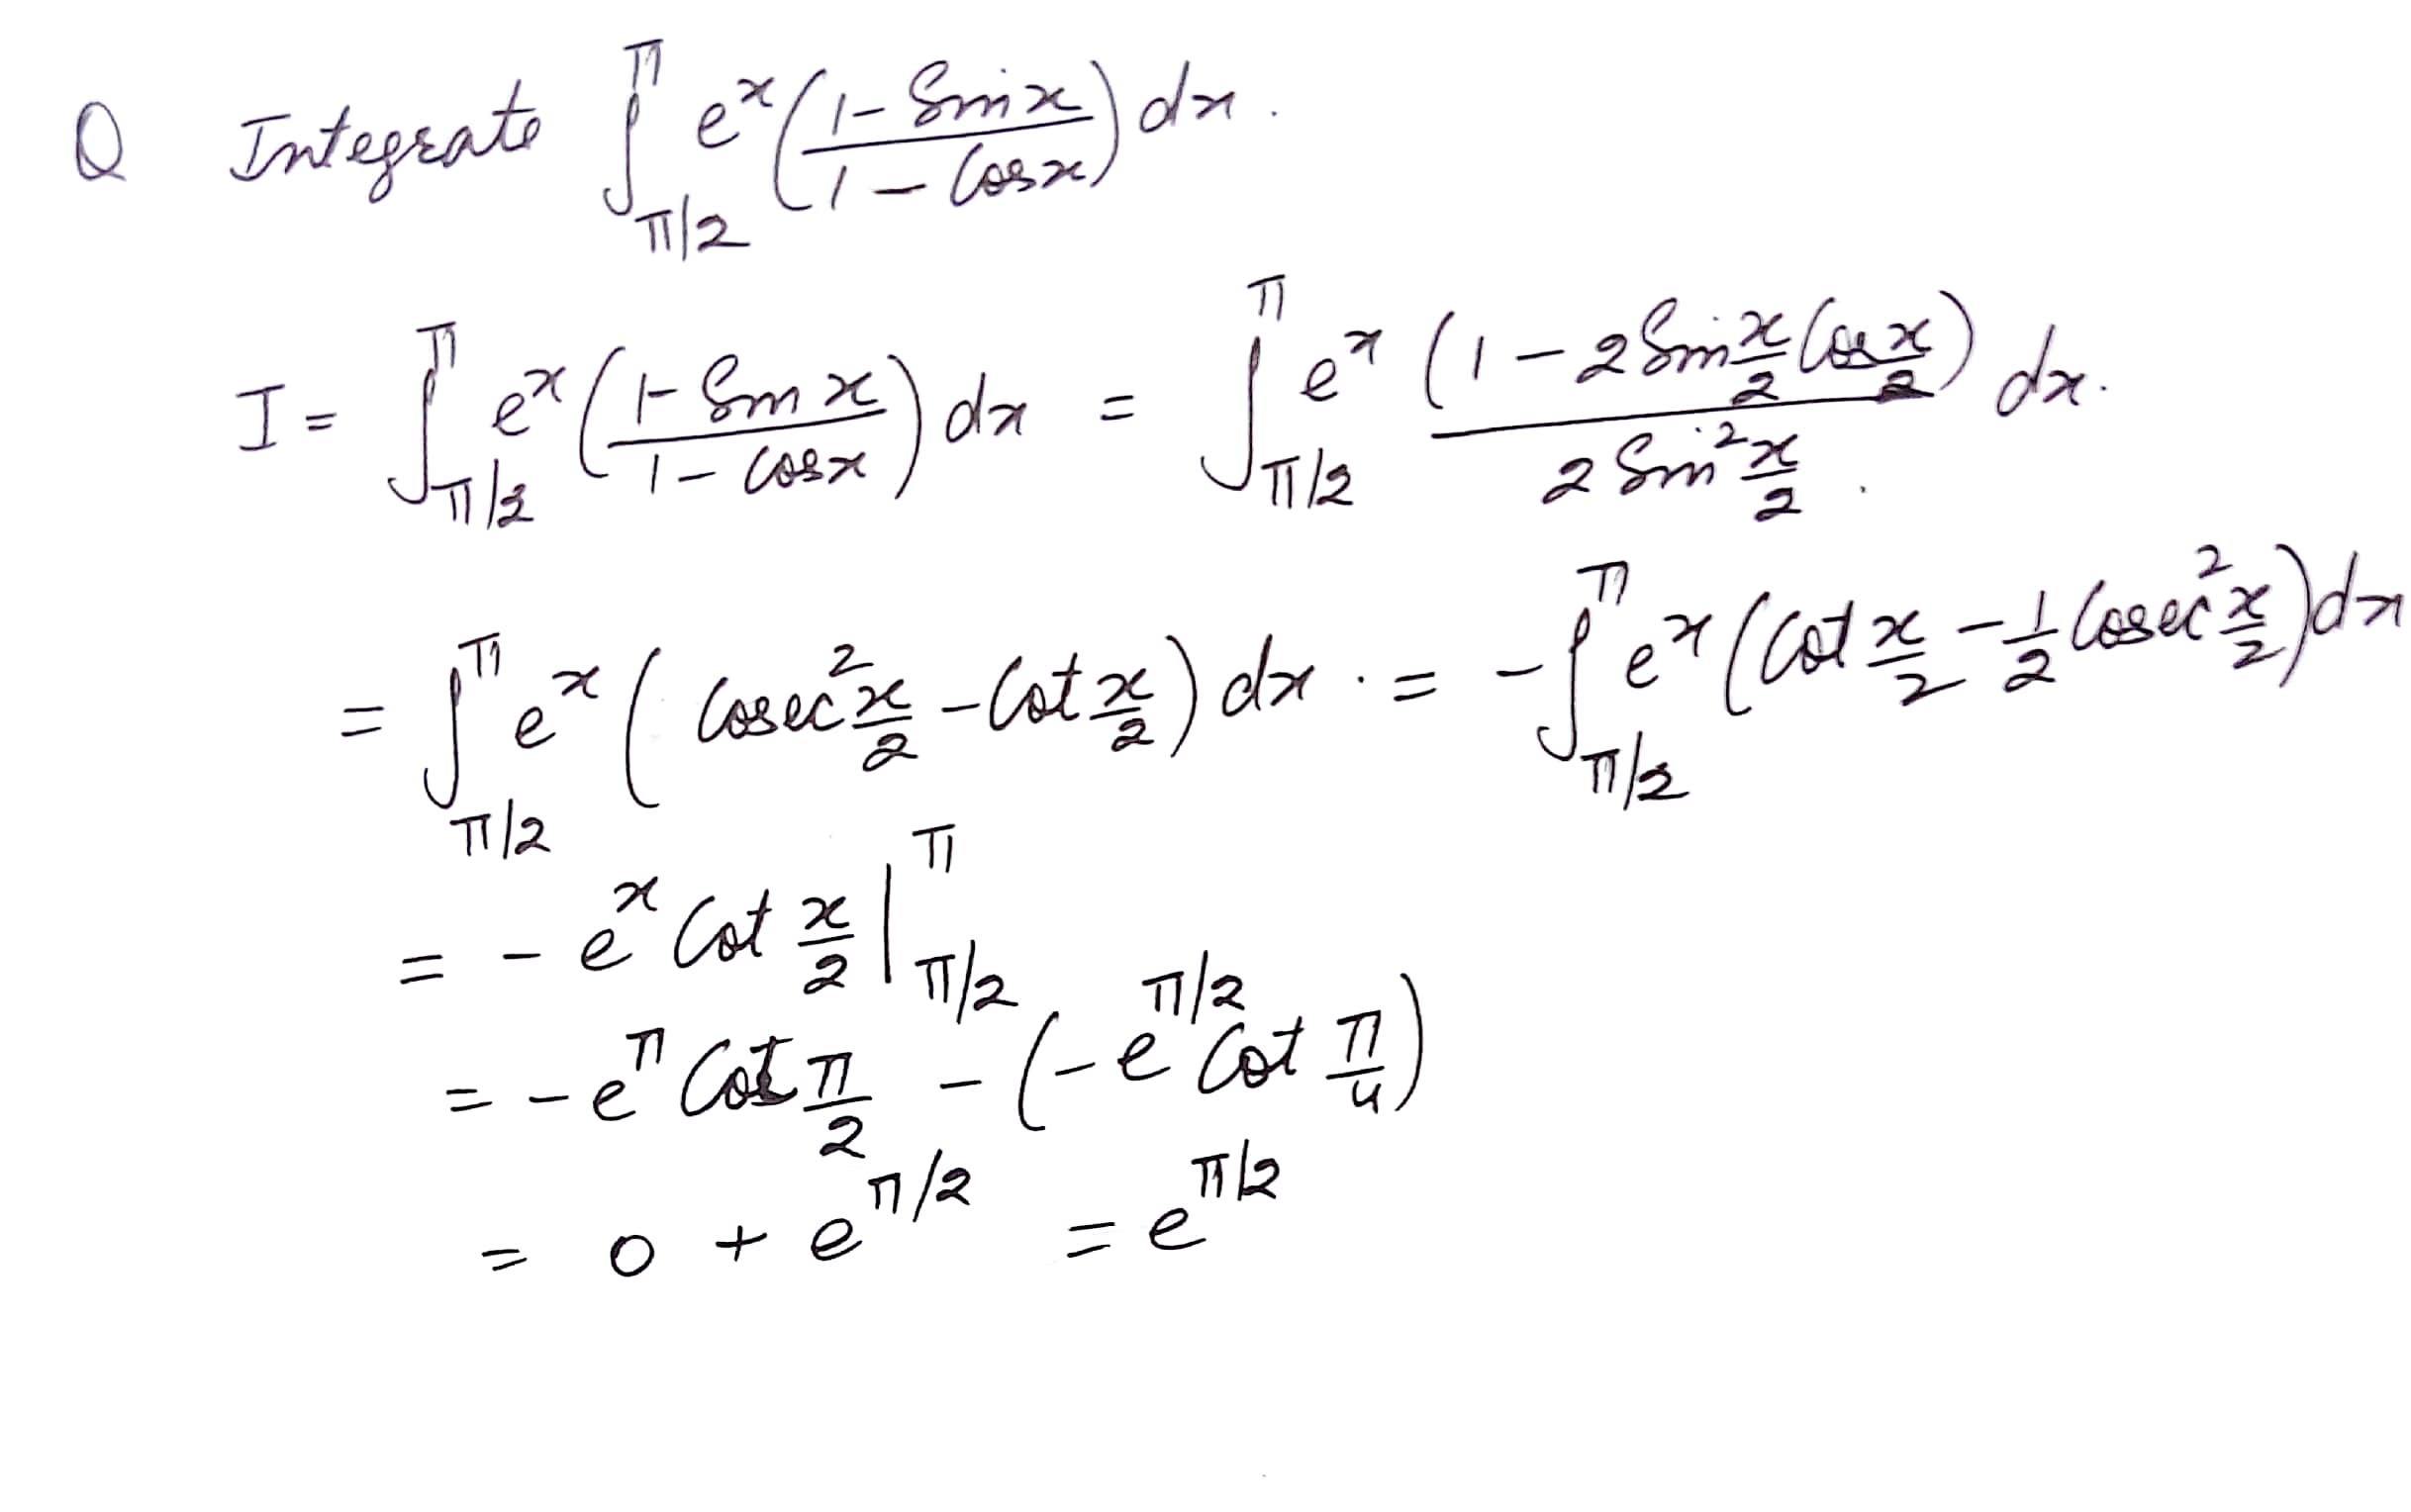 Q Integrate ∫_{π/2}^{π} e^x ((1 - Sin x)/(1 - Cos x)) dx.
I = ∫_{π/2}^{π} e^x ((1 - Sin x)/(1 - Cos x)) dx = ∫_{π/2}^{π} e^x (1 - 2 Sin x/2 Cos x/2)/(2 Sin² x/2) dx.
= ∫_{π/2}^{π} e^x (Cosec² x/2 - Cot x/2) dx. = -∫_{π/2}^{π} e^x (Cot x/2 - 1/2 Cosec² x/2) dx
= - e^x Cot x/2 |_{π/2}^{π}
= - e^π Cot π/2 - (- e^{π/2} Cot π/4)
= 0 + e^{π/2} = e^{π/2}